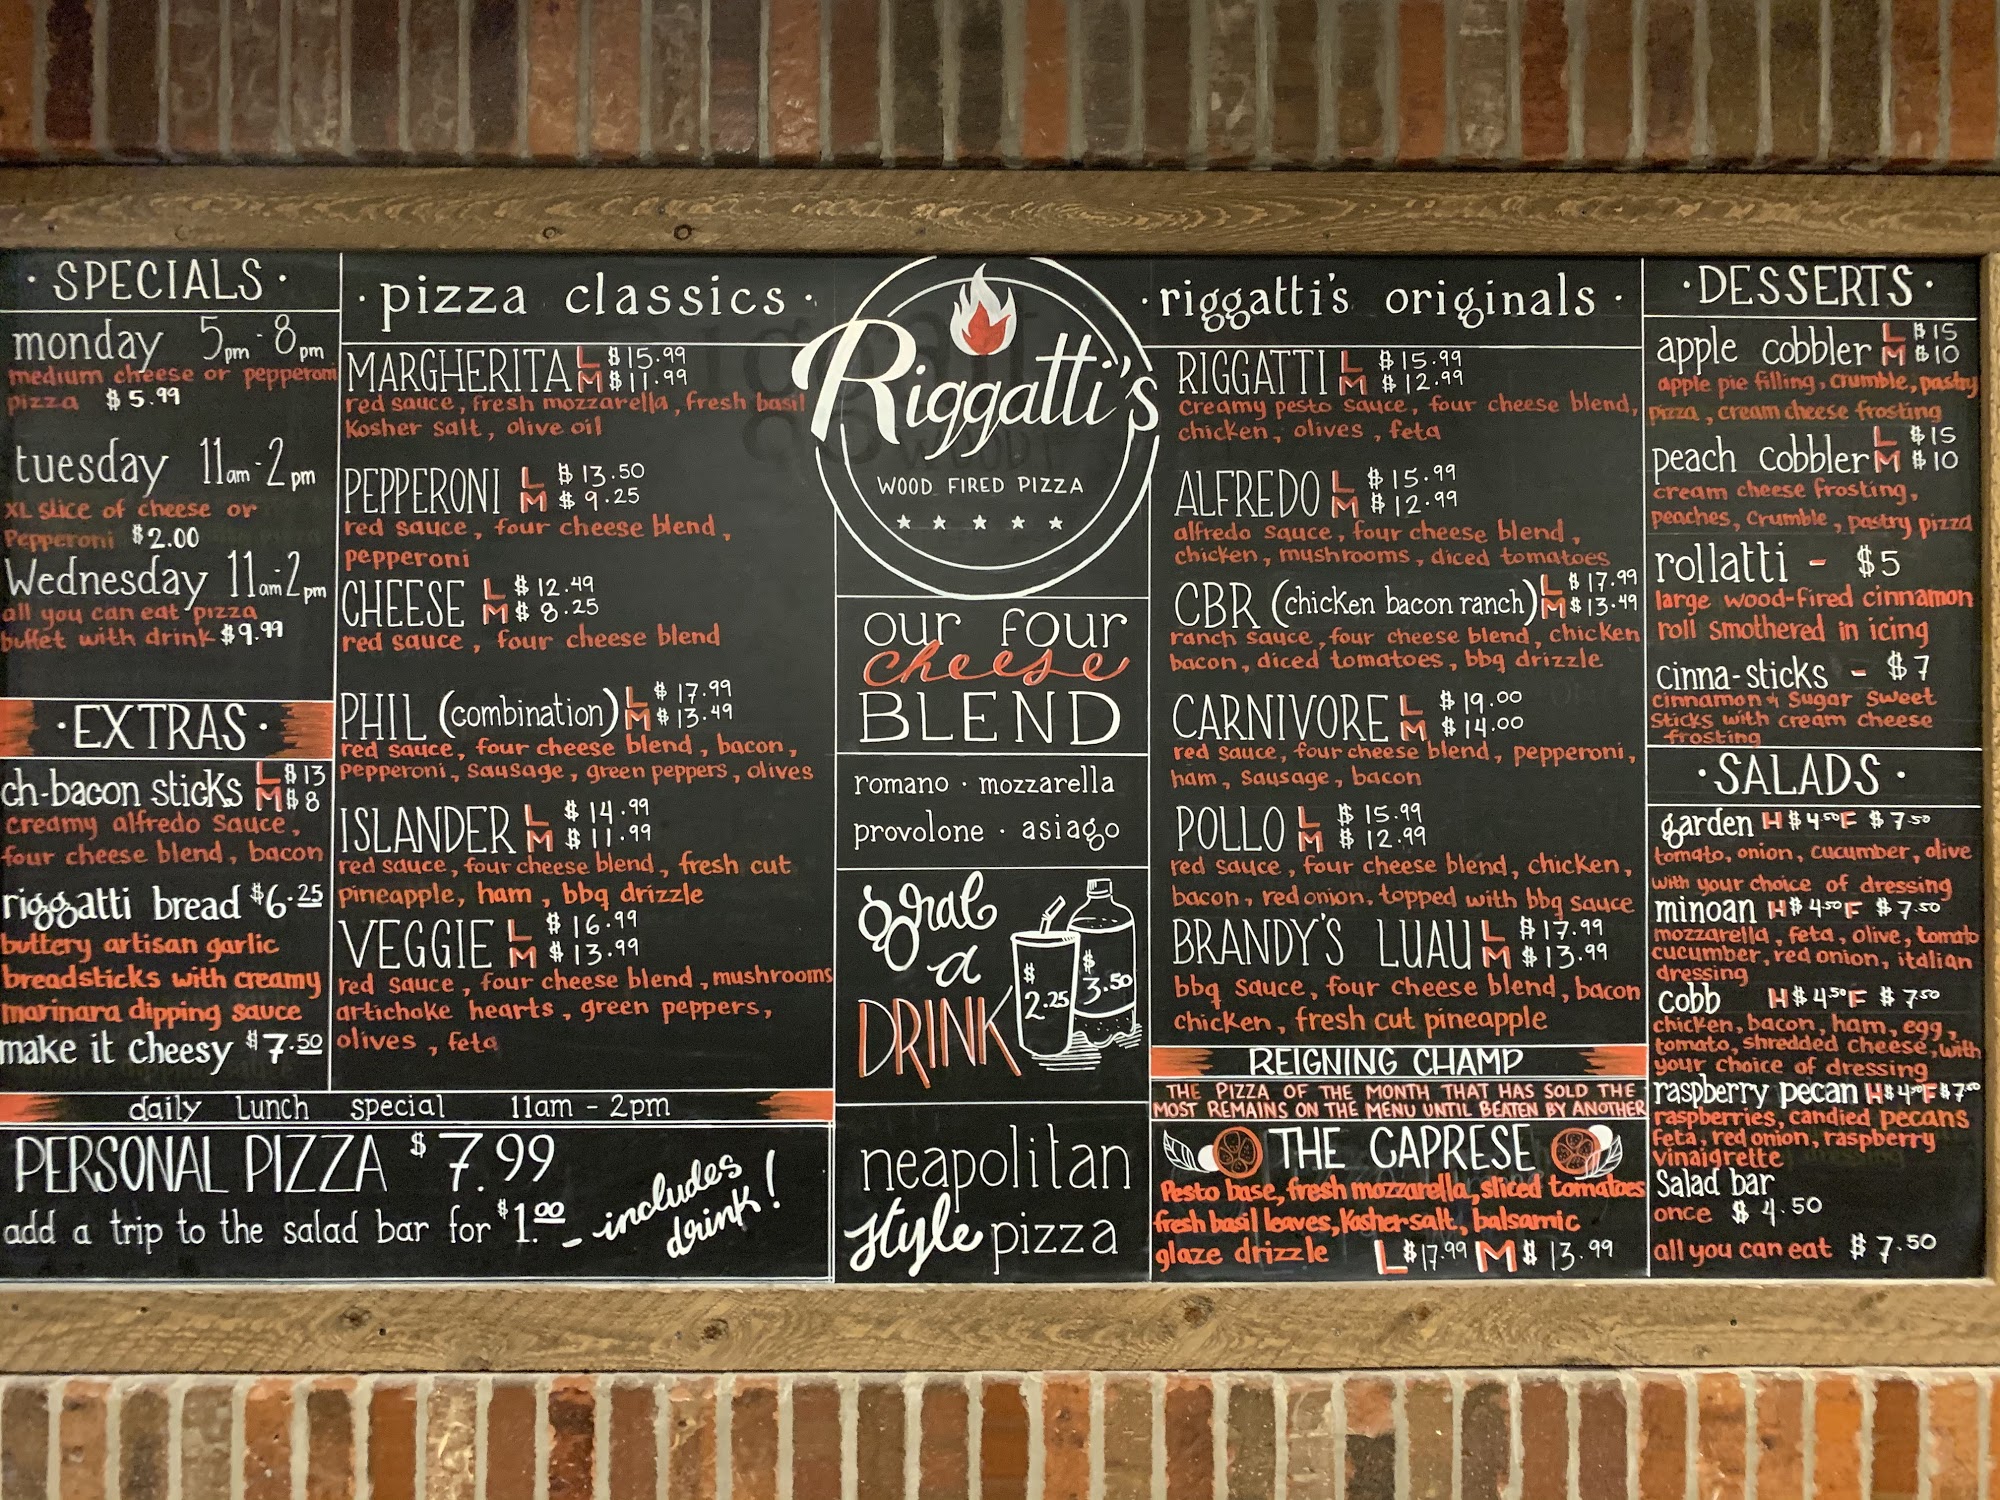 · SPECIALS ·
monday 5pm - 8pm
medium cheese or pepperoni
pizza $5.99
tuesday 11am - 2pm
XL slice of cheese or
Pepperoni $2.00
Wednesday 11am-2pm
all you can eat pizza
buffet with drink $9.99
· EXTRAS ·
ch-bacon sticks L $13
M $8
creamy alfredo sauce,
four cheese blend, bacon
riggatti bread $6.25
buttery artisan garlic
breadsticks with creamy
marinara dipping sauce
make it cheesy $7.50
· pizza classics ·
MARGHERITA L $15.99
M $11.99
red sauce, fresh mozzarella, fresh basil
Kosher salt, olive oil
PEPPERONI L $13.50
M $9.25
red sauce, four cheese blend,
pepperoni
CHEESE L $12.49
M $8.25
red sauce, four cheese blend
PHIL (combination) L $17.99
M $13.49
red sauce, four cheese blend, bacon,
Pepperoni, sausage, green peppers, olives
ISLANDER L $14.99
M $11.99
red sauce, four cheese blend, fresh cut
pineapple, ham, bbq drizzle
VEGGIE L $16.99
M $13.99
red sauce, four cheese blend, mushrooms
artichoke hearts, green peppers,
olives, feta
daily Lunch special 11am - 2pm
PERSONAL PIZZA $7.99
add a trip to the salad bar for $1.00 - includes
drink!
Riggatti's
WOOD FIRED PIZZA
our four
cheese
BLEND
romano · mozzarella
provolone · asiago
grab
a
DRINK
$2.25
$3.50
neapolitan
style pizza
· riggatti's originals ·
RIGGATTI L $15.99
M $12.99
creamy pesto sauce, four cheese blend,
chicken, olives, feta
ALFREDO L $15.99
M $12.99
alfredo sauce, four cheese blend,
chicken, mushrooms, diced tomatoes
CBR (chicken bacon ranch) L $17.99
M $13.49
ranch sauce, four cheese blend, chicken
bacon, diced tomatoes, bbq drizzle
CARNIVORE L $19.00
M $14.00
red sauce, four cheese blend, pepperoni,
ham, sausage, bacon
POLLO L $15.99
M $12.99
red sauce, four cheese blend, chicken,
bacon, red onion, topped with bbq sauce
BRANDY'S LUAU L $17.99
M $13.99
bbq sauce, four cheese blend, bacon
chicken, fresh cut pineapple
REIGNING CHAMP
THE PIZZA OF THE MONTH THAT HAS SOLD THE
MOST REMAINS ON THE MENU UNTIL BEATEN BY ANOTHER
THE CAPRESE
Pesto base, fresh mozzarella, sliced tomatoes
fresh basil leaves, Kosher salt, balsamic
glaze drizzle L $17.99 M $13.99
· DESSERTS ·
apple cobbler L $15
M $10
apple pie filling, crumble, pastry
pizza, cream cheese frosting
peach cobbler L $15
M $10
cream cheese frosting,
peaches, crumble, pastry pizza
rollatti - $5
large wood-fired cinnamon
roll smothered in icing
cinna-sticks - $7
cinnamon & sugar sweet
sticks with cream cheese
frosting
· SALADS ·
garden H $4.50 F $7.50
tomato, onion, cucumber, olive
with your choice of dressing
minoan H $4.50 F $7.50
mozzarella, feta, olive, tomato
cucumber, red onion, italian
dressing
cobb H $4.50 F $7.50
chicken, bacon, ham, egg,
tomato, shredded cheese, with
your choice of dressing
raspberry pecan H $4.50 F $7.50
raspberries, candied pecans
feta, red onion, raspberry
vinaigrette
Salad bar
once $4.50
all you can eat $7.50